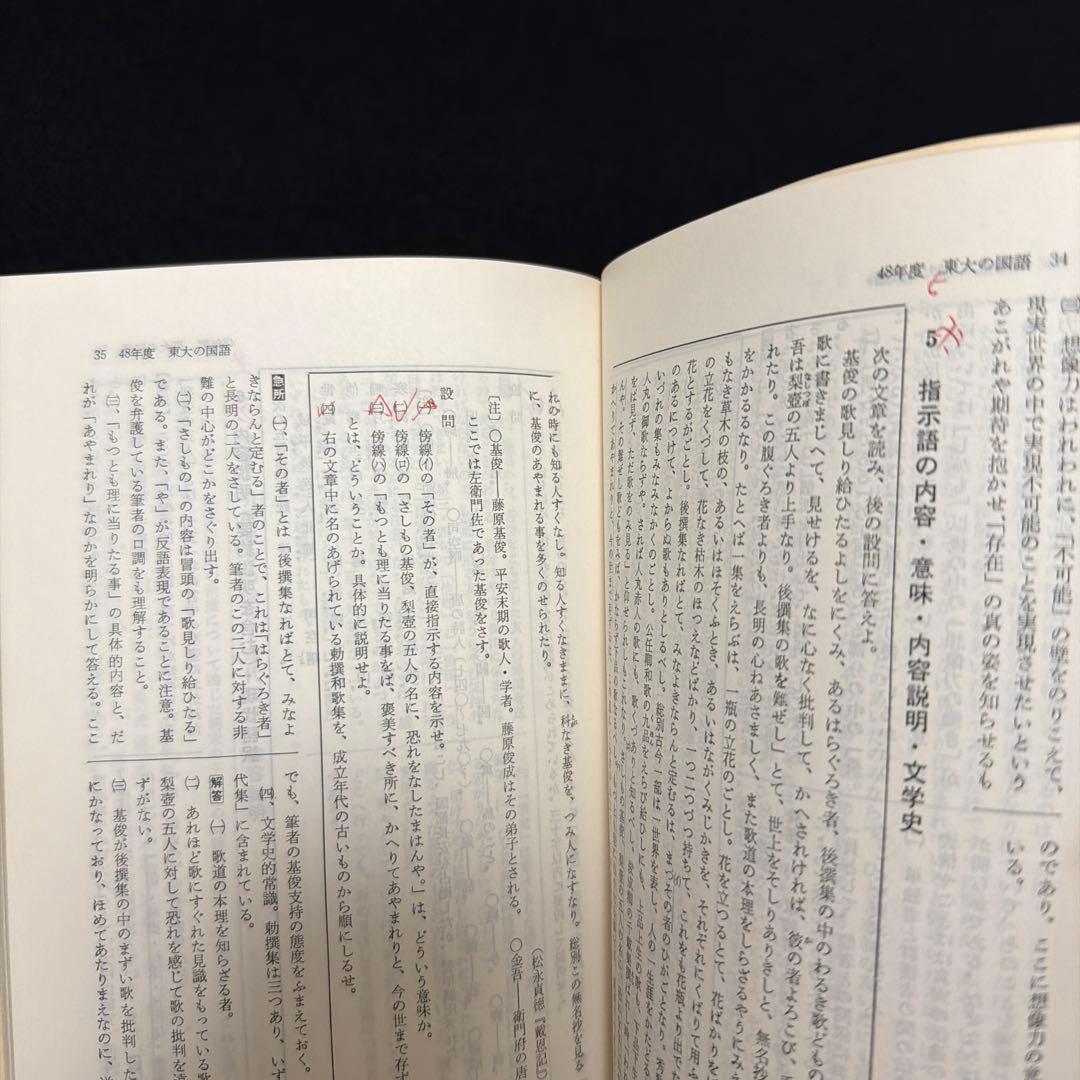 48年度　東大の国語　34
㈢　想像力はわれわれに、「不可能」の壁をのりこえて、
現実世界の中で実現不可能のことを実現させたいという
あこがれや期待を抱かせ、「存在」の真の姿を知らせるも
のであり。ここに想像力の意
いる。
5　指示語の内容・意味・内容説明・文学史
次の文章を読み、後の設問に答えよ。
基俊の歌見しり給ひたるよしをにくみ、あるはらぐろき者、後撰集の中のわるき歌どもの
歌に書きまじへて、見せけるを、なに心なく批判して、かへされければ、彼の者よろこび、
吾は梨壺の五人より上手なり。後撰集の歌を難ぜし」とて、世上をそしりありきしと、無名抄
れたり。この腹ぐろき者よりも、長明の心ねあさましく、また歌道の本理をしらざるやうにみえ
をかかるるなり。たとへば一集をえらぶは、一瓶の立花のごとし。花を立つるとて、花ばかりを
もなき草木の枝の、あるいはほそくふとき、あるいはながくみじかきを、それぞれにくばりて用ふ
の立花をくづして、花なき枯木のほつえなどばかり、一つ二つづつ持ちて、これをも花瓶より出でた
花とするがごとし。後撰集なればとて、みなよきならんと定むるは、まづその者のひがごとなり。秀
のあるにつけて、よからぬ歌もありとしるべし。総別古今一部は、世界を表し、人の一生涯をかたどる
いづれの集もみなみなかくのごとし。公任卿和歌の九品をえらび給ひしにも、上品上生の歌も、下品下生
人丸の御歌ならずや。されば人丸赤人の歌にも、歌くづありと知るべし。
をば見ず、ただ歌をのみ見る」と仰せられしもこれなり。さしもの基俊、
れの時にも知る人すくなし。知る人すくなきままに、科なき基俊を、つみ人になすなり。総別この無名抄を見る
に、基俊のあやまれる事を多くのせられたり。
（松永貞徳『戴恩記』）
〔注〕　〇基俊――藤原基俊。平安末期の歌人・学者。藤原俊成はその弟子とされる。　〇金吾――衛門府の唐
ここでは左衛門佐であった基俊をさす。
設問
㈠　傍線(イ)の「その者」が、直接指示する内容を示せ。
㈡　傍線(ロ)の「さしもの基俊、梨壺の五人の名に、恐れをなしたまはんや。」は、どういう意味か。
㈢　傍線(ハ)の「もつとも理に当りたる事をば、褒美すべき所に、かへりてあやまれりと、今の世まで存ず
とは、どういうことか。具体的に説明せよ。
㈣　右の文章中に名のあげられている勅撰和歌集を、成立年代の古いものから順にしるせ。
35　48年度　東大の国語
急所　㈠、「その者」とは「後撰集なればとて、みなよ
きならんと定むる」者のことで、これは「はらぐろき者」
と長明の二人をさしている。筆者のこの二人に対する非
難の中心がどこかをさぐり出す。
㈡、「さしもの」の内容は冒頭の「歌見しり給ひたる」
である。また、「や」が反語表現であることに注意。基
俊を弁護している筆者の口調をも理解すること。
㈢、「もつとも理に当りたる事」の具体的内容と、だ
れが「あやまれり」なのかを明らかにして答える。ここ
でも、筆者の基俊支持の態度をふまえておく。
㈣、文学史的常識。勅撰集は三つあり、いず
代集」に含まれている。
解答　㈠　歌道の本理を知らざる者。
㈡　あれほど歌にすぐれた見識をもっている
梨壺の五人に対して恐れを感じて歌の批判を
ずがない。
㈢　基俊が後撰集の中のまずい歌を批判した
にかなっており、ほめてあたりまえなのに、